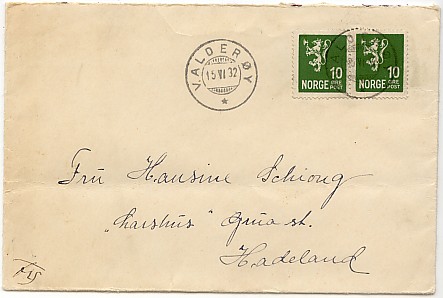 VALDERØY
15 VI 32
10
ØRE
NORGE POST
10
ØRE
NORGE POST
Fru Hansine Schiong
"Larshus" Grua st.
Hadeland